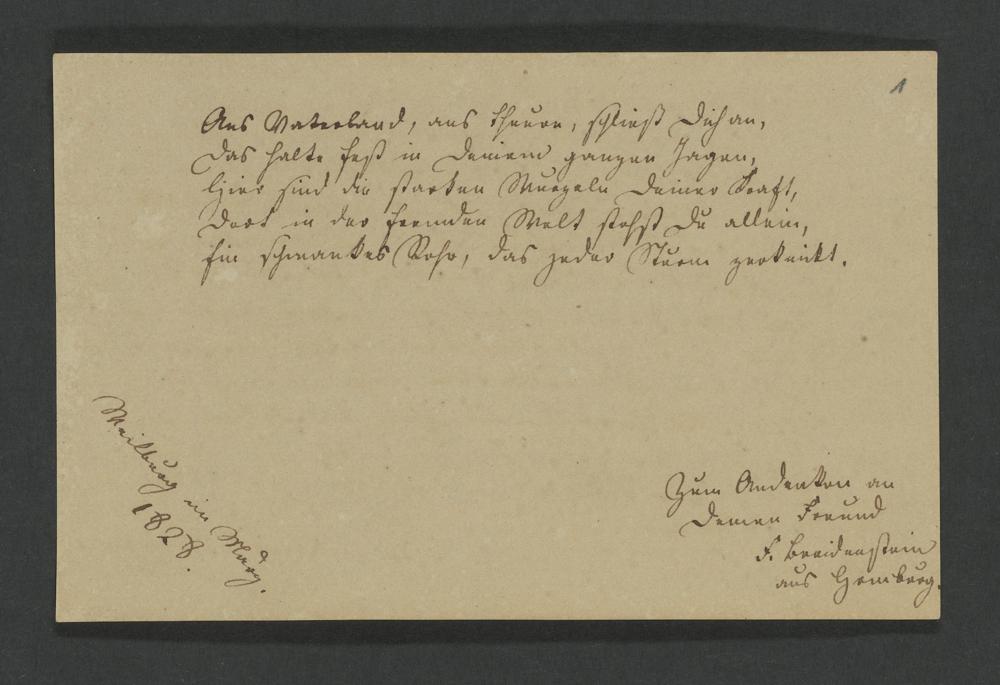 Ans Vaterland, ans theure, schließ Dich an,
das halte fest in Deinem ganzen
Hier sind die starken Wurzeln Deiner Kraft,
dort in der fremden Welt stehst Du allein,
Ein schwankes Rohr, das jeder Sturm zerknickt.
1
Zum Andenken an
Deinen Freund
F. Breidenstein
aus Homburg.
Weilburg im März.
1828.